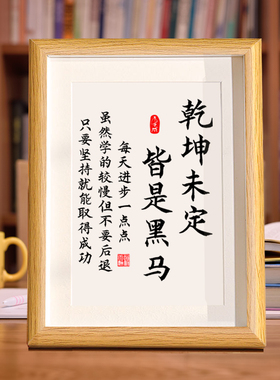 乾坤未定
皆是黑马
每天进步一点点
虽然学的较慢但不要后退
只要坚持就能取得成功